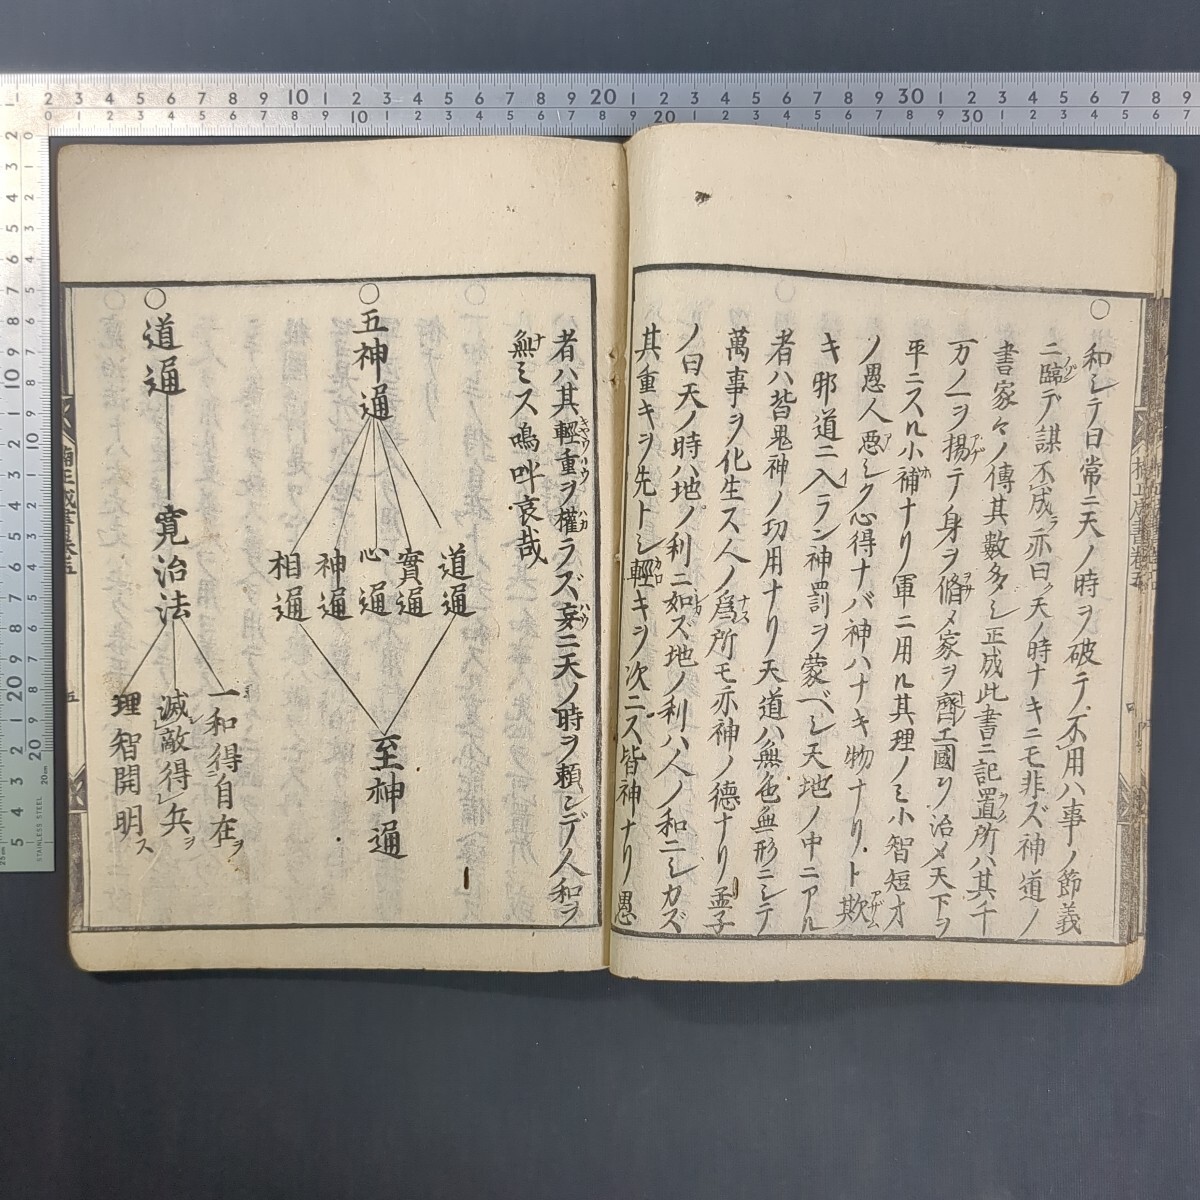 ○和シテ曰常ニ天ノ時ヲ破テ不用ハ事ノ節義
ニ臨デ謀不成亦曰天ノ時ナキニモ非ズ神道ノ
書家々ノ傳其數多シ正成此書ニ記置所ハ其千
万ノ一ヲ揚テノ身ヲ脩メ家ヲ齊エ國リ治メ天下ヲ
平ニスル小補ナリ軍ニ用ル其理ノミ小智短才
ノ愚人悪シク心得ナバ神ハナキ物ナリト欺
キ邪道ニ入ラン神罰ヲ蒙ベシ天地ノ中ニアル
者ハ皆鬼神ノ功用ナリ天道ハ無色無形ニシテ
萬事ヲ化生ス人ノ爲所モ亦神ノ德ナリ孟子
ノ曰天ノ時ハ地ノ利ニ如ズ地ノ利ハ人ノ和ニシカズ
其重キヲ先トシ輕キヲ次ニス皆神ナリ愚
者ハ其輕重ヲ權ラズ妄ニ天ノ時ヲ頼シデ人和ヲ
無ミス嗚呼哀哉
○五神通
道通
實通
心通
神通
相通
至神通
○道通
寛治法
一和得自在ヲ
滅敵得兵ヲ
理智開明ス
五